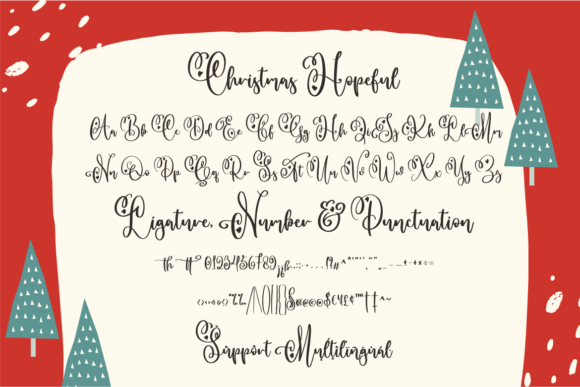 Christmas Hopeful
Aa Bb Cc Dd Ee Ff Gg Hh Ii Jj Kk Ll Mm
Nn Oo Pp Qq Rr Ss Tt Uu Vv Ww Xx Yy Zz
Ligature, Number & Punctuation
th tt 0123456789
Support Multilingual